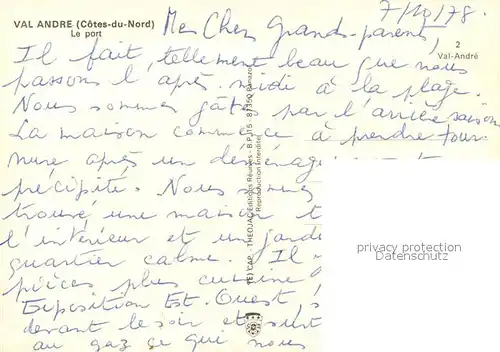 VAL ANDRE (Côtes-du-Nord)
Le port
7/10/78.
Mes Chers Grands-parents,
2
Val-André
Il fait tellement beau que nous
passons l'après-midi à la plage.
Nous sommes gâtés par l'arrière saison
La maison commence à prendre tour-
nure après un déménag
précipité. Nous sommes
trouvé une maison
l'intérieur et un jardi
quartier calme. Il
pièces plus cuisine
Exposition Est. Ouest
devant le soir et
au gaz ce qui nous
CAP - THEOJAC
Reproduction Interdite
privacy protection
Datenschutz